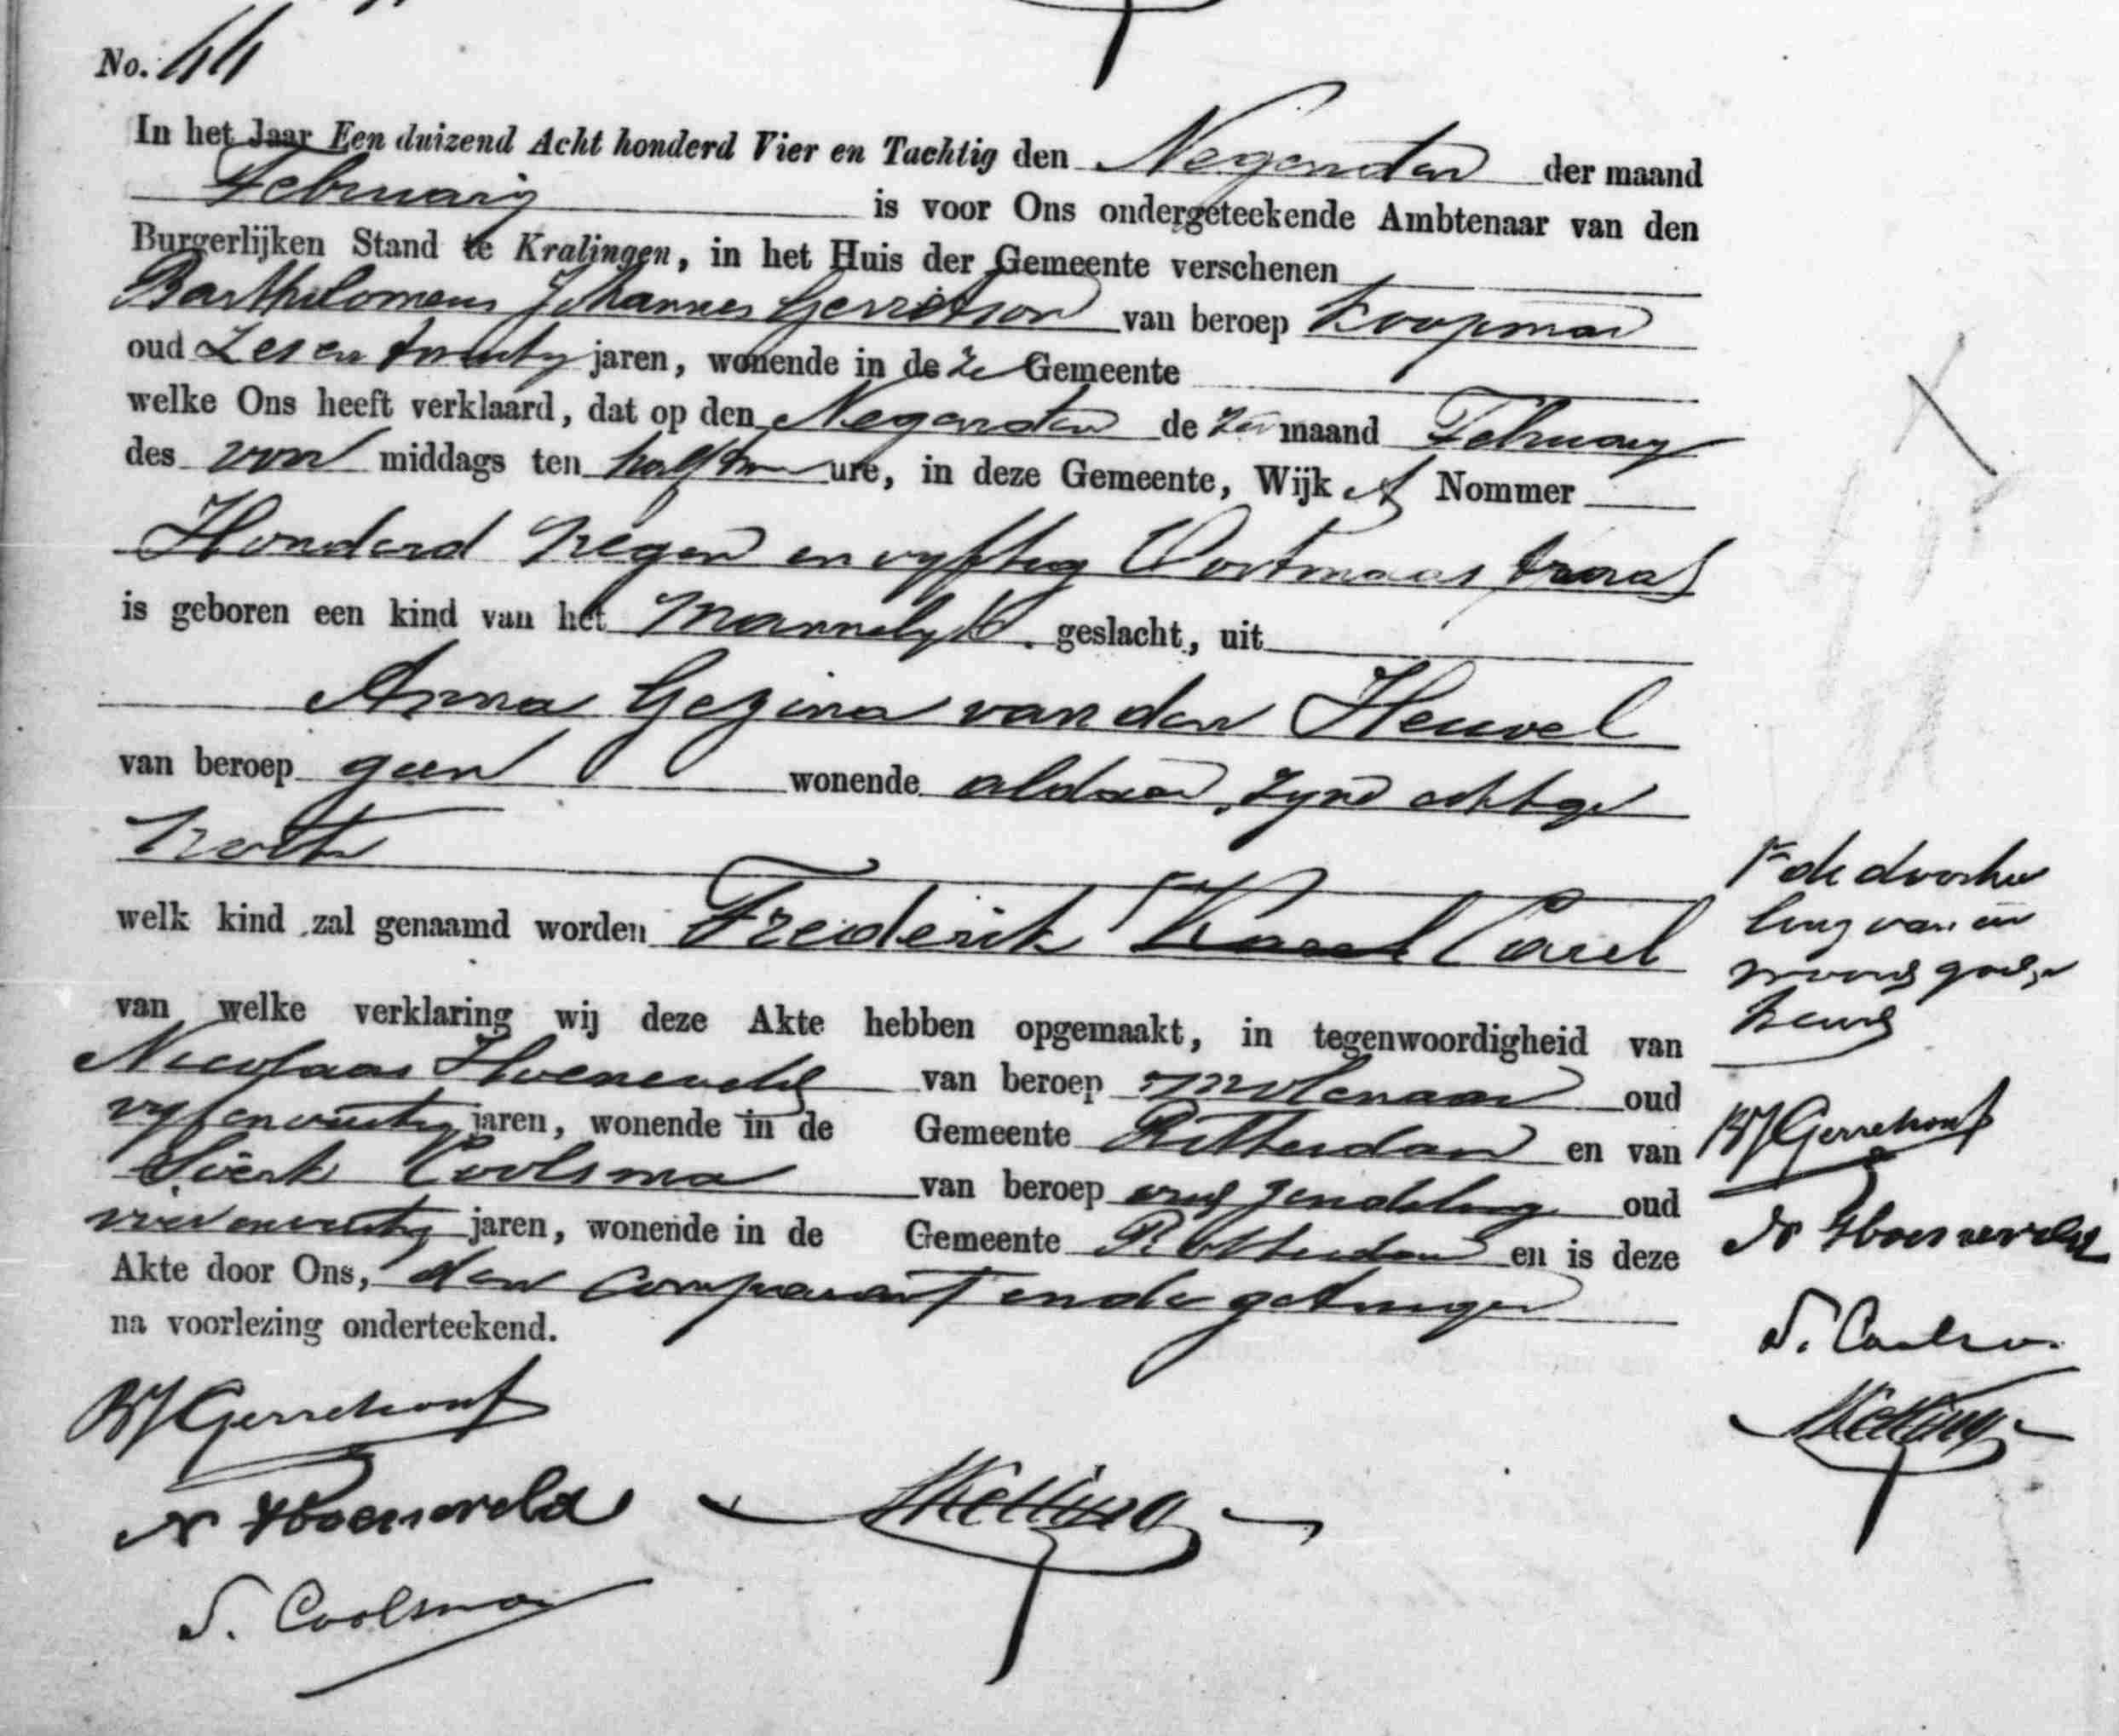 No. 44
In het Jaar Een duizend Acht honderd Vier en Tachtig den Negenden der maand
February is voor Ons ondergeteekende Ambtenaar van den
Burgerlijken Stand te Kralingen, in het Huis der Gemeente verschenen
Bartholomeus Johannes Gerretson van beroep Koopman
oud Zes en twintig jaren, wonende in deze Gemeente
welke Ons heeft verklaard, dat op den Negenden dezer maand February
des voor middags ten half ure, in deze Gemeente, Wijk A Nommer
Honderd negen en vyftig Oostmaas straat
is geboren een kind van het Mannelyk geslacht, uit
Anna Gezina van den Heuvel
van beroep geen wonende aldaar, zyne echtge
noote
welk kind zal genaamd worden Frederik Karel Carel
van welke verklaring wij deze Akte hebben opgemaakt, in tegenwoordigheid van
Nicolaas Hoeneveld van beroep molenaar oud
vyfenveertig jaren, wonende in de Gemeente Rotterdam en van
Sierk Coolsma van beroep zendeling oud
vierenveertig jaren, wonende in de Gemeente Rotterdam en is deze
Akte door Ons, den Comparant en de getuigen
na voorlezing onderteekend.
BJGerretson
N Hoeneveld
S. Coolsma
Kelling
1e de doorha
ling van een
woord goedge
keurd
BJGerretson
N Hoeneveld
S. Coolsma
Kelling